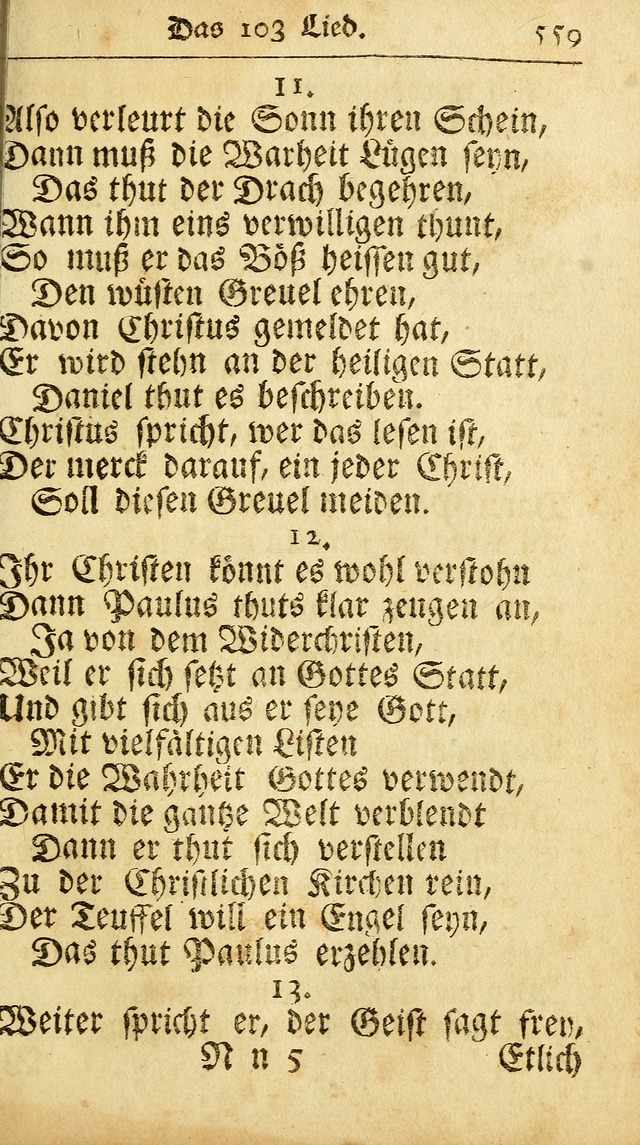 Das 103 Lied. 559
11.
Also verleurt die Sonn ihren Schein,
Dann muß die Warheit Lügen seyn,
Das thut der Drach begehren,
Wann ihm eins verwilligen thunt,
So muß er das Böß heissen gut,
Den wüsten Greuel ehren,
Davon Christus gemeldet hat,
Er wird stehn an der heiligen Statt,
Daniel thut es beschreiben.
Christus spricht, wer das lesen ist,
Der merck darauf, ein jeder Christ,
Soll diesen Greuel meiden.
12.
Ihr Christen könnt es wohl verstohn
Dann Paulus thuts klar zeugen an,
Ja von dem Widerchristen,
Weil er sich setzt an Gottes Statt,
Und gibt sich aus er seye Gott,
Mit vielfältigen Listen
Er die Wahrheit Gottes verwendt,
Damit die gantze Welt verblendt
Dann er thut sich verstellen
Zu der Christlichen Kirchen rein,
Der Teuffel will ein Engel seyn,
Das thut Paulus erzehlen.
13.
Weiter spricht er, der Geist sagt frey,
N n 5 Etlich